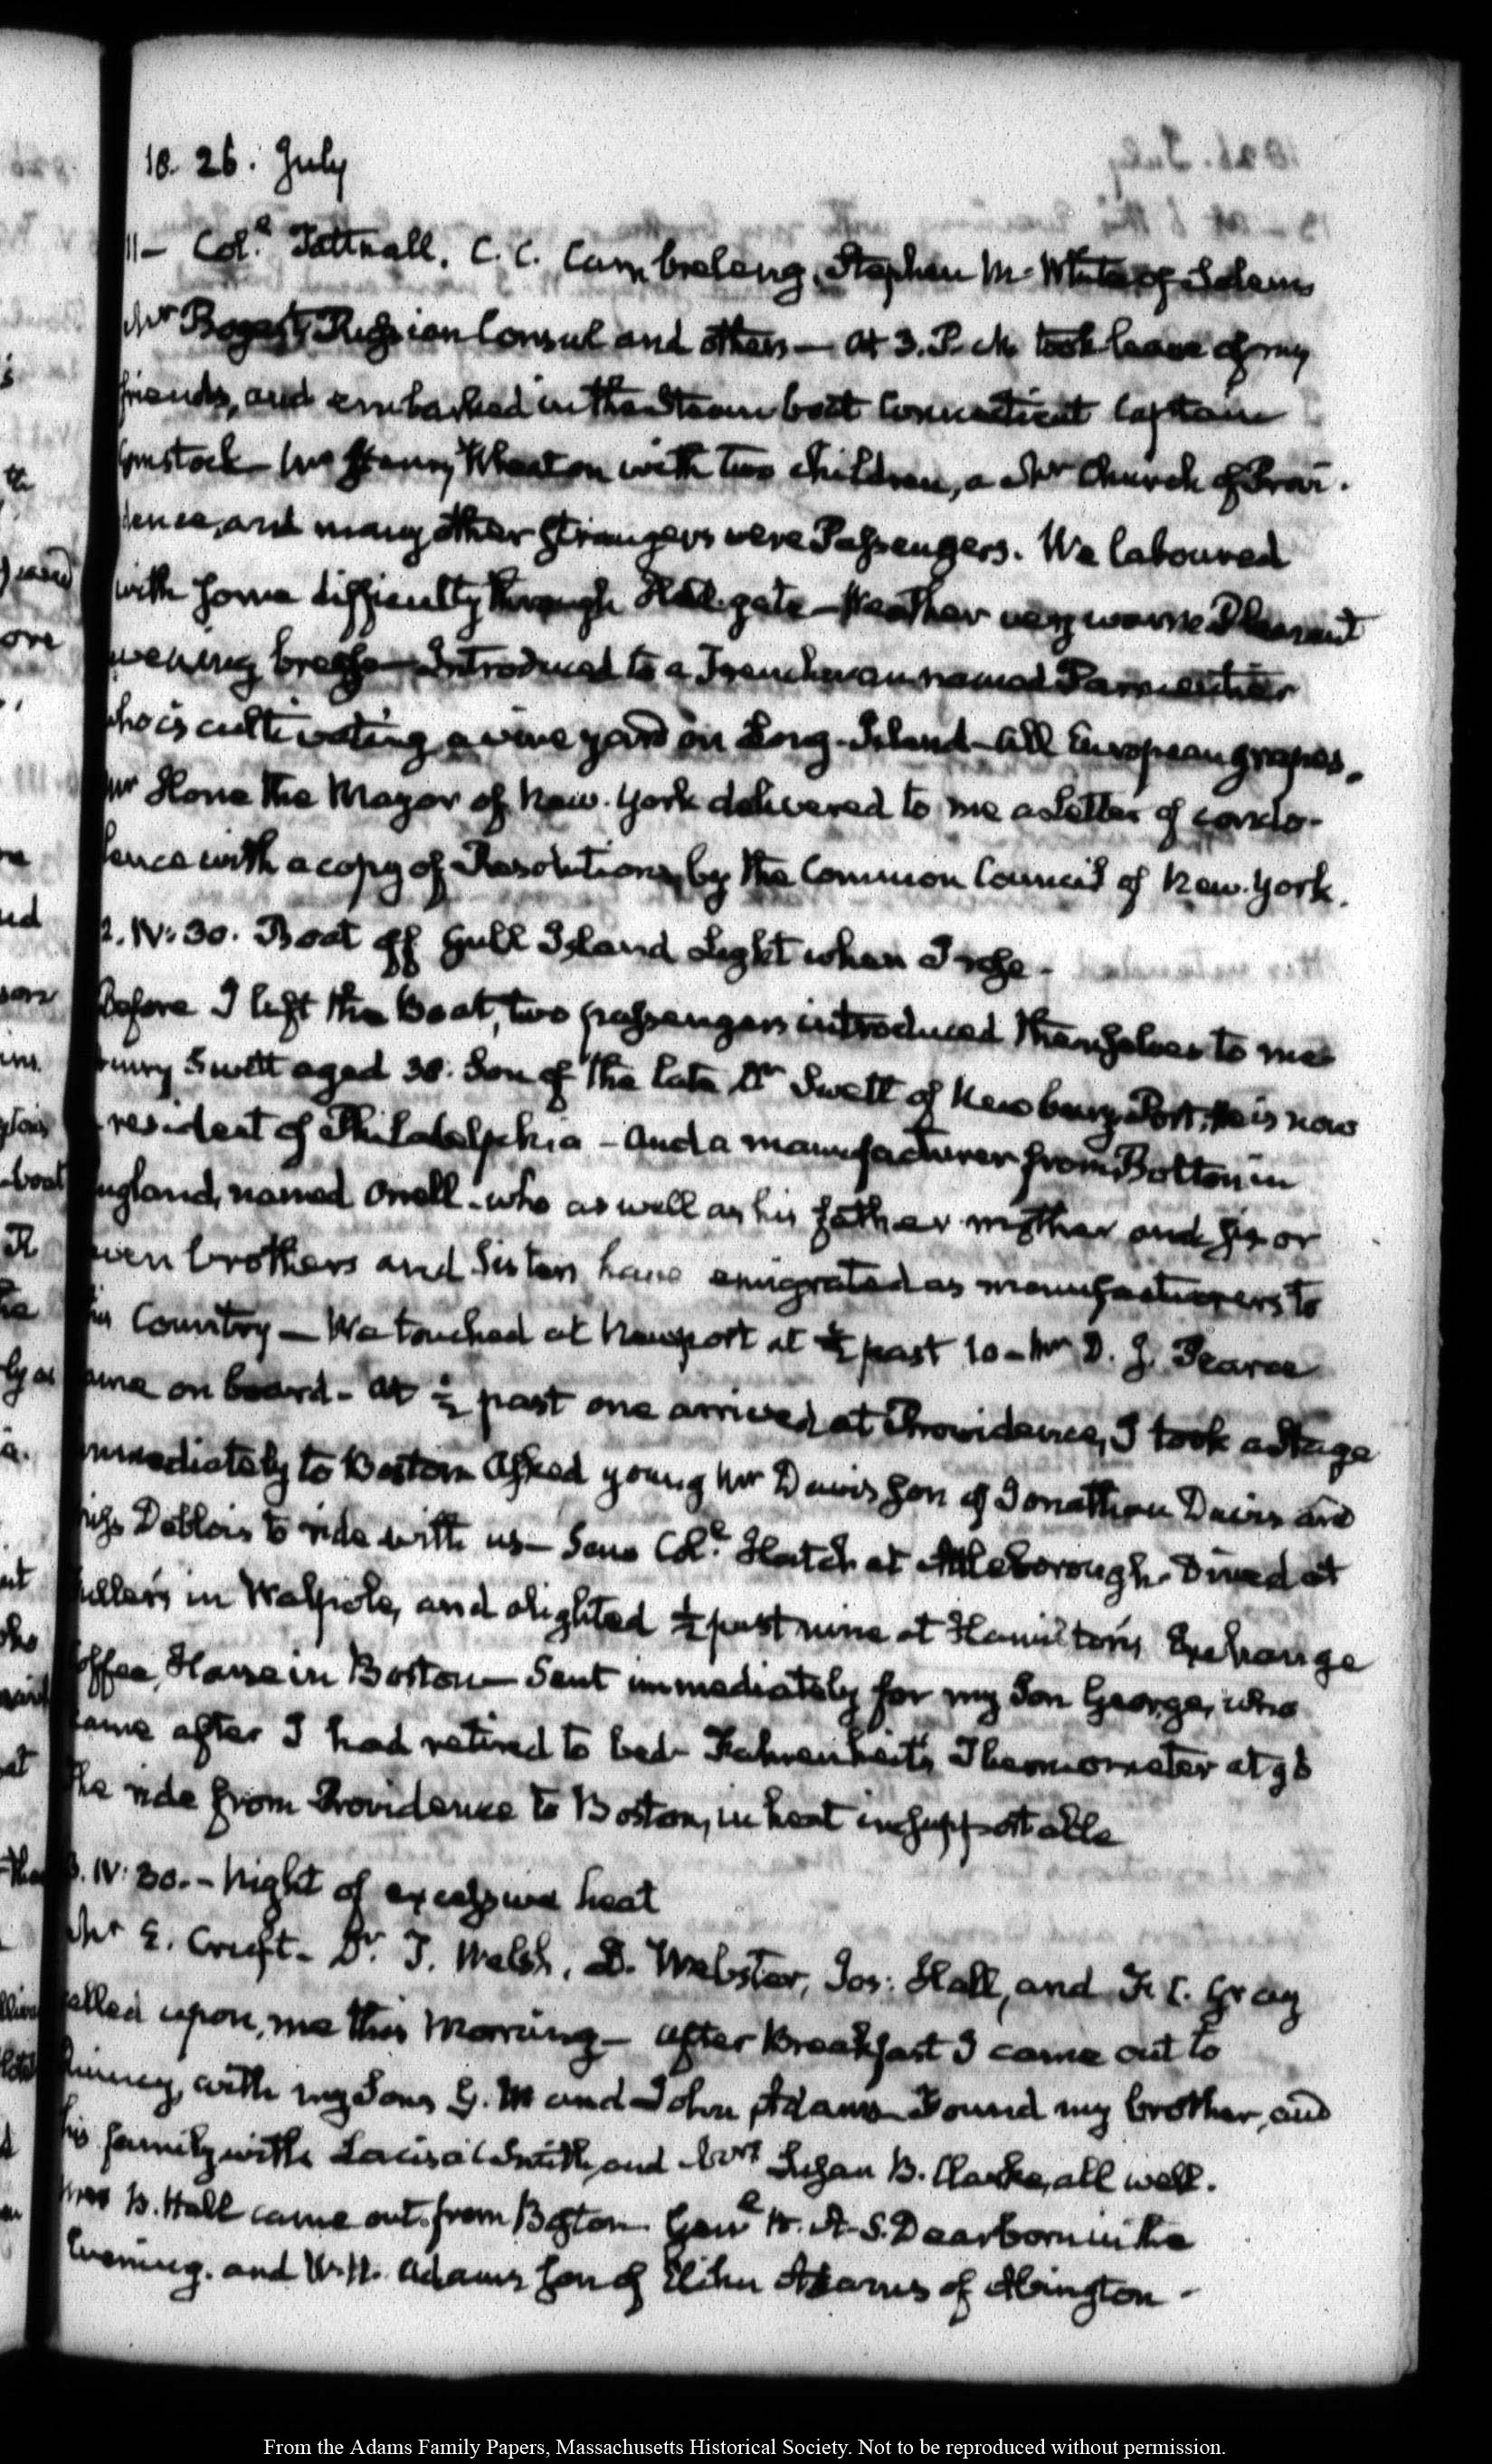 18. 26. July
11- Col.e Tattnall. C. C. Cambreleng, Stephen M. White of Salem
Mr Bogert Russian Consul and others — At 3. P.M. took leave of my
friends, and embarked in the Steam boat Connecticut Captain
omstock — Mrs Henry Wheaton with two children, a Mr Church of Provi-
dence, and many other strangers were Passengers. We laboured
with some difficulty through Hell-gate — Weather very warm Pleasant
evening breeze — Introduced to a Frenchman named Parmentier
who is cultivating a vineyard on Long-Island — All European grapes.
Mr Hone the Mayor of New-York delivered to me a Letter of condo-
lence with a copy of Resolutions, by the Common Council of New-York.
2. IV: 30. Boat off Gull Island Light when I rose.
Before I left the Boat, two passengers introduced themselves to me
enry Swett aged 38. Son of the late Dr Swett of Newbury-Port, he is now
resident of Philadelphia — And a manufacturer from Bolton in
ngland, named Orrell. who as well as his father mother and six or
even brothers and Sisters have emigrated as manufacturers to
his Country — We touched at Newport at ½ past 10 — Mr D. J. Pearce
ame on board — At ½ past one arrived at Providence, I took a Stage
mmediately to Boston Asked young Mr Davis son of Jonathan Davis and
iss Deblois to ride with us — Saw Col.e Hatch at Attleborough. Dined at
ullers in Walpole, and alighted ½ past nine at Hamilton's Exchange
offee House in Boston — Sent immediately for my Son George, who
came after I had retired to bed — Fahrenheit's Thermometer at 96
The ride from Providence to Boston, in heat insupportable
3. IV: 30. — Night of excessive heat
Mr E. Cruft — Dr. T. Welsh, D. Webster, Jos: Hall, and F. C. Gray
alled upon, me this Morning — After Breakfast I came out to
Quincy, with my Sons G. W and John Adams Found my brother, and
his family with Louisa C Smith, and Mrs Susan B. Clarke, all well.
Mrs B. Hall came out from Boston. Genl H. A. S. Dearborn in the
Evening. and W. H. Adams son of Elihu Adams of Abington -
From the Adams Family Papers, Massachusetts Historical Society. Not to be reproduced without permission.